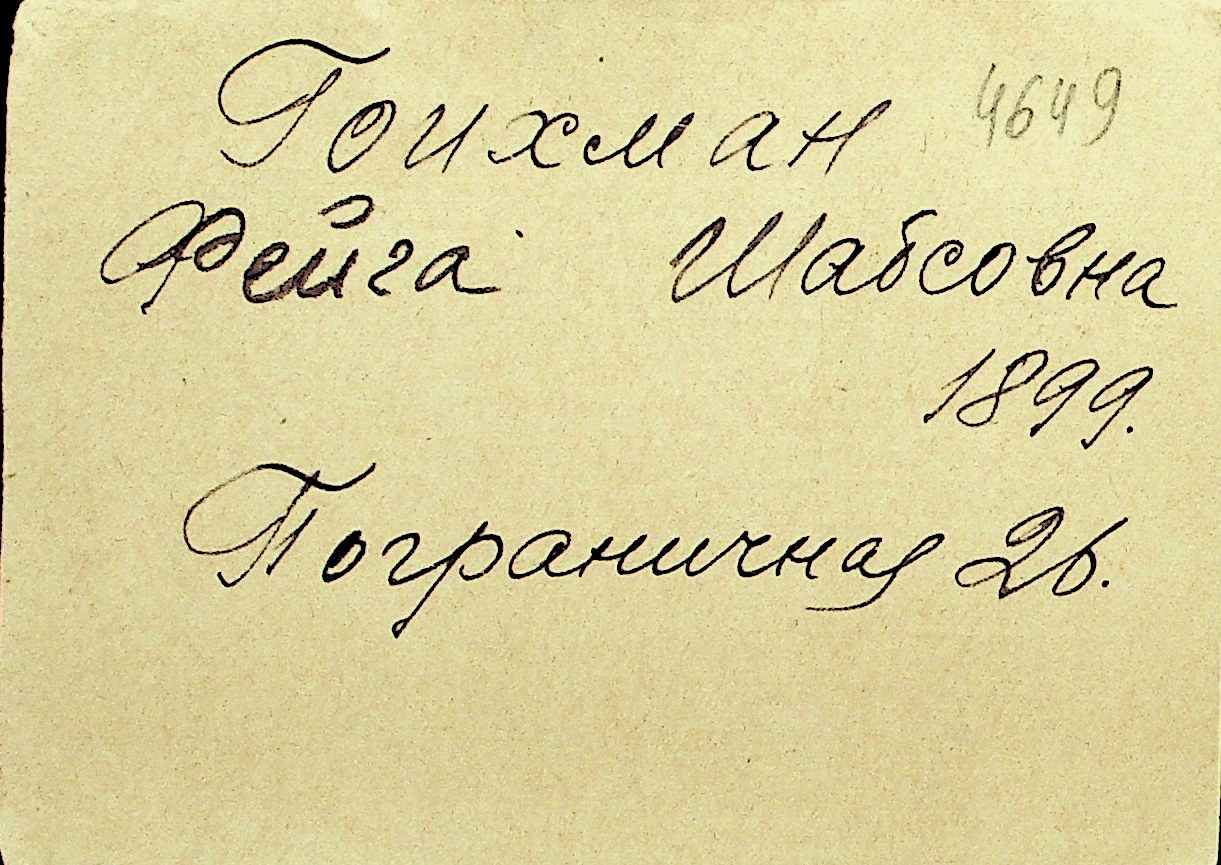 Гоихман 4649
Фейга Шабсовна
1899.
Пограничная 26.